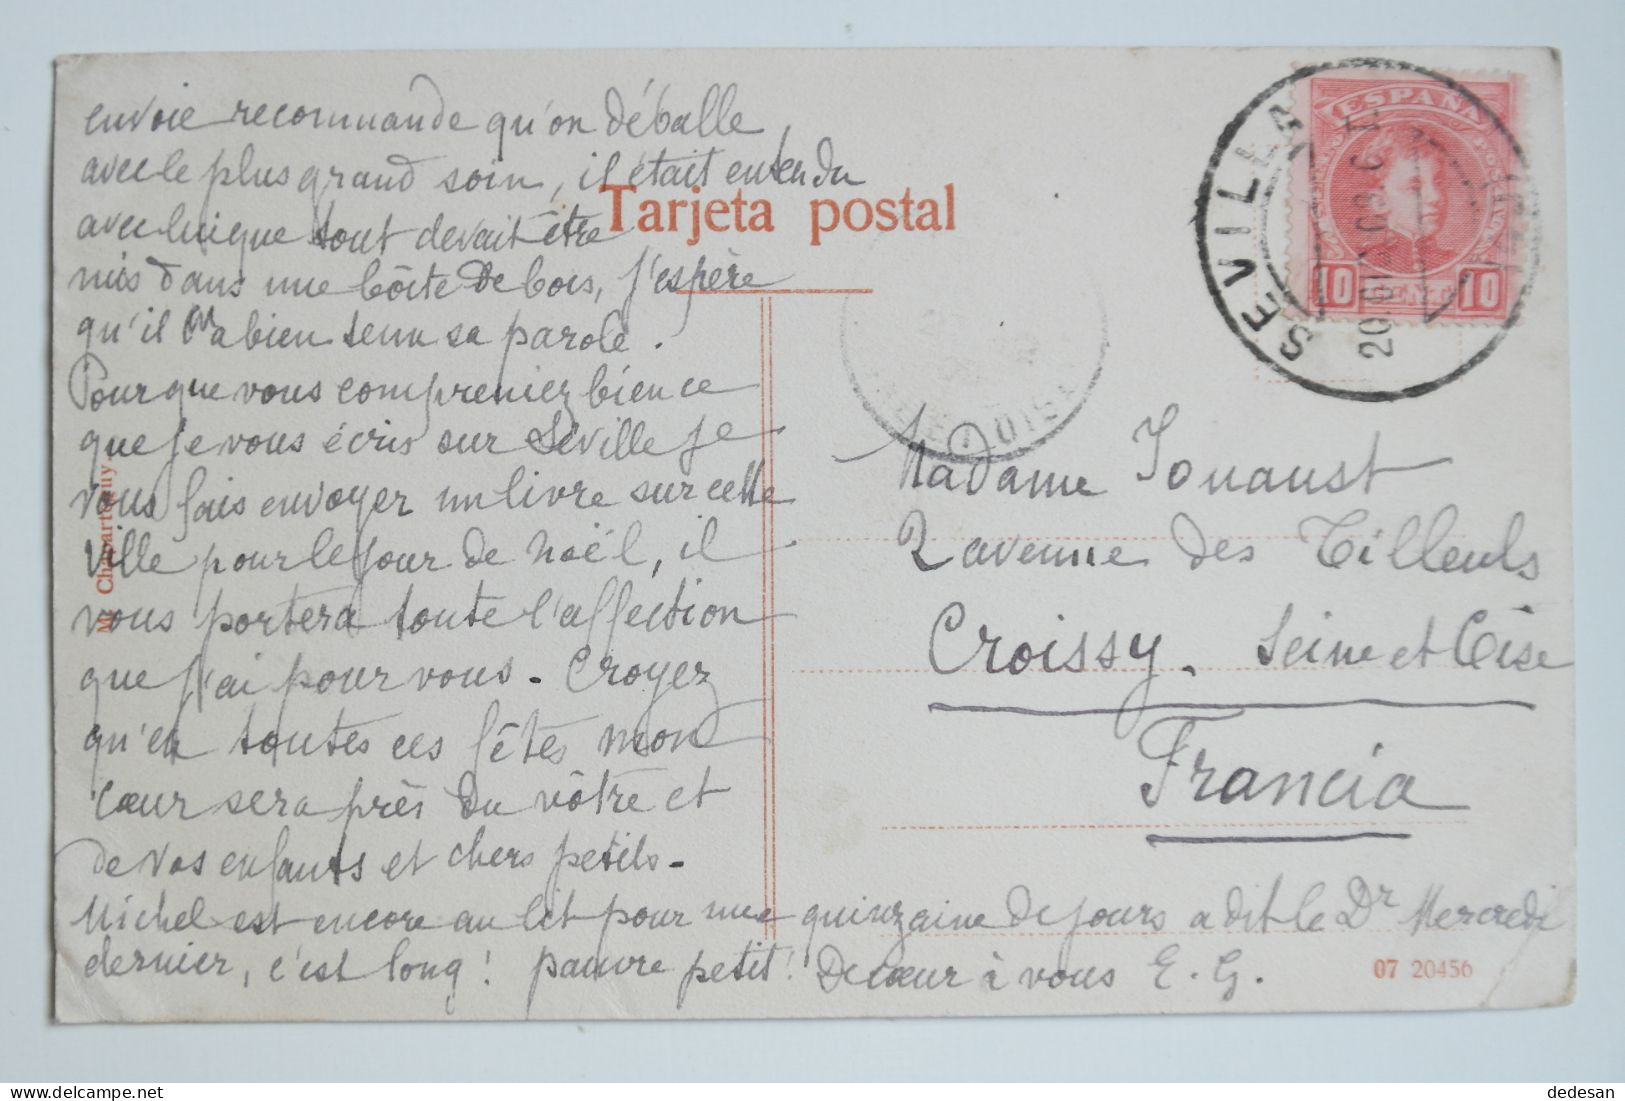 envoie recommande qu'on déballe
avec le plus grand soin, il était entendu
avec lui que tout devait être
mis dans une bôite de bois, j'espère
qu'il a bien tenu sa parole.
Pour que vous compreniez bien ce
que je vous écris sur Séville je
vous fais envoyer un livre sur cette
ville pour le jour de Noël, il
vous portera toute l'affection
que j'ai pour vous. Croyez
qu'en toutes ces fêtes mon
cœur sera près du vôtre et
de vos enfants et chers petits.
Michel est encore au lit pour une quinzaine de jours a dit le Dr Mercredi
dernier, c'est long! pauvre petit! De cœur à vous E. G.
Tarjeta postal
M. Chapartéguy
ESPAÑA
10 CENT 10
SEVILLA
Madame Jouaust
2 avenue des Tilleuls
Croissy. Seine et Oise
Francia
07 20456
dedesan